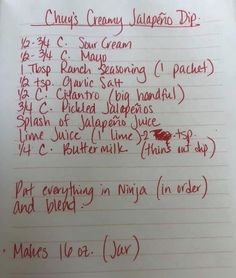 Chuy's Creamy Jalapeño Dip
1/2-3/4 C. Sour Cream
1/2-3/4 C. Mayo
1 Tbsp Ranch Seasoning (1 packet)
1/2 tsp. Garlic Salt
1/2 C. Cilantro (big handful)
3/4 C. Pickled Jalapeños
Splash of Jalapeño Juice
Lime Juice (1 lime) ~2 tsp.
1/4 C. Buttermilk (thins out dip)
Put everything in Ninja (in order)
and blend.
· Makes 16 oz. (Jar)